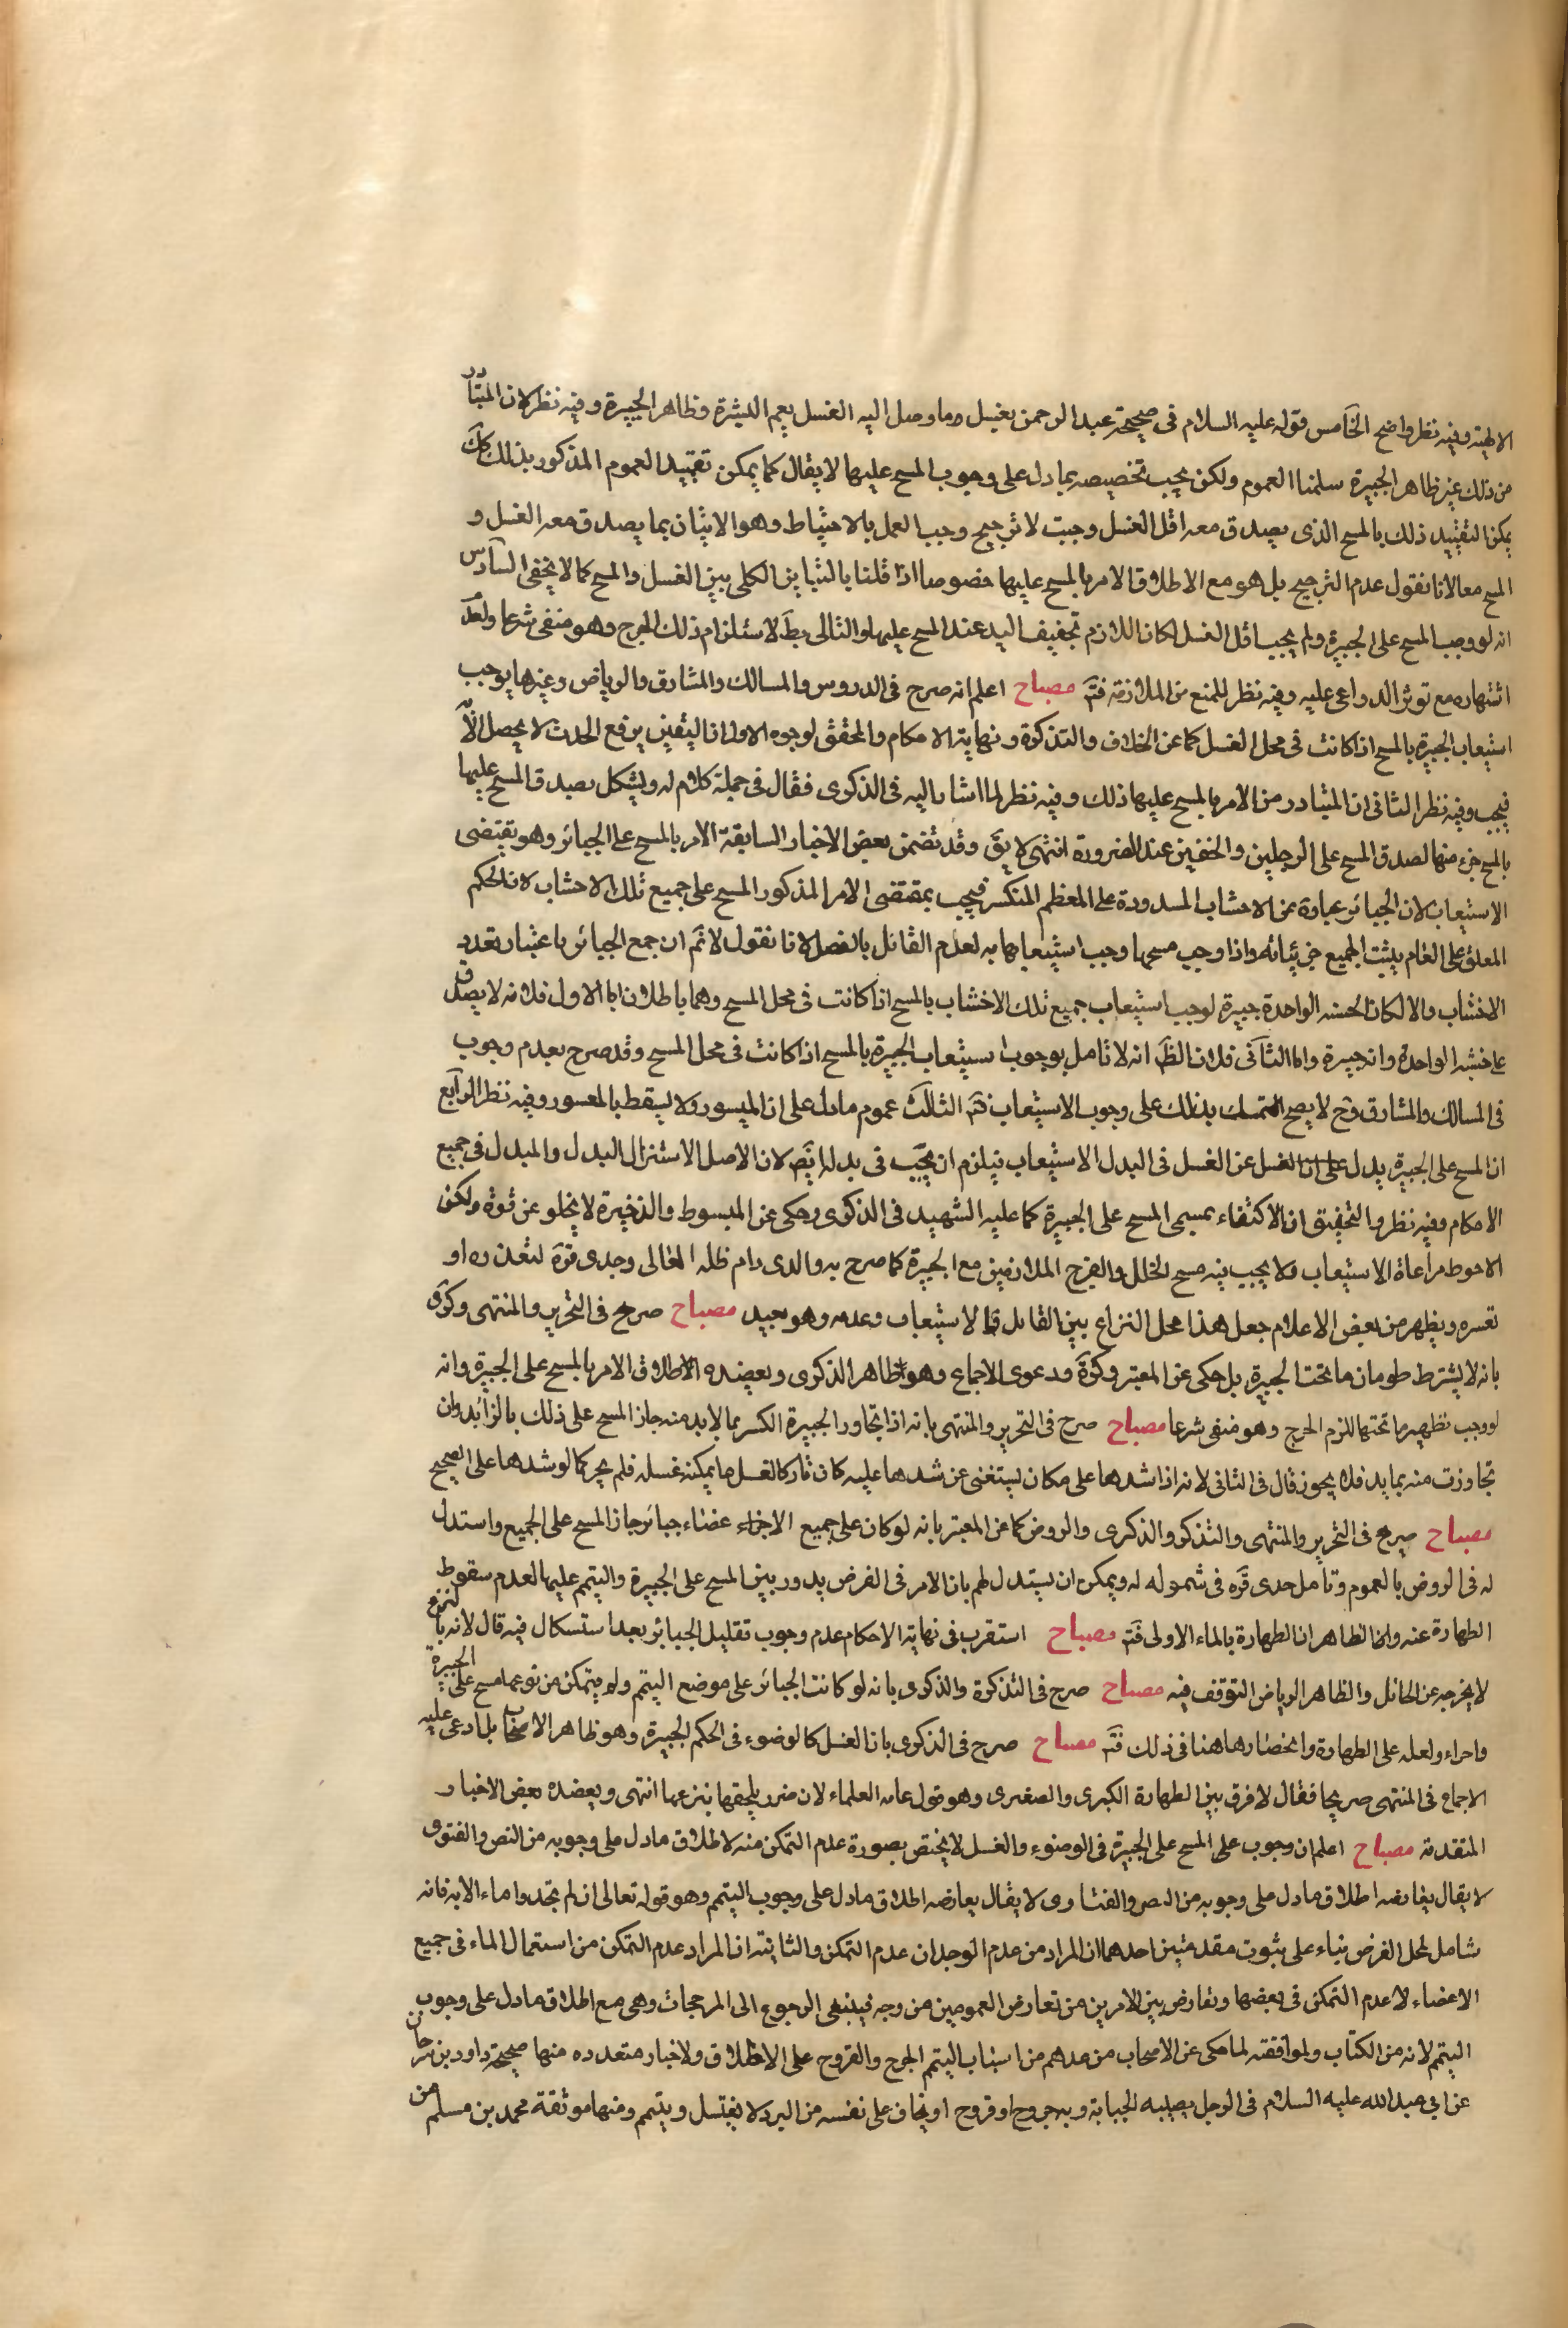 الاطية وفيه نظر واضح الخامس قوله عليه السلام في صحيحة عبد الرحمن يغسل وما وصل اليه الغسل يعم البشرة وظاهر الجبيرة وفيه نظر لان المتبادر
من ذلك غير ظاهر الجبيرة سلمنا العموم ولكن يجب تخصيصه بما دل على وجوب المسح عليها لا يقال كما يمكن تقييد العموم المذكور بذلك كك
يمكن التقييد ذلك بالمسح الذى يصدق معه اقل الغسل وحيث لا ترجيح وجب العمل بالاحتياط وهو الاتيان بما يصدق معه الغسل و
المسح معا لانا نقول عدم الترجيح بل هو مع الاطلاق الامر بالمسح عليها خصوصا اذا قلنا بالتباين الكلى بين الغسل والمسح كما لا يخفى السادس
انه لو وجب المسح على الجبيرة ولم يجب اقل الغسل لكان اللازم تجفيف اليد عند المسح عليها والتالى بط لاستلزام ذلك الحرج وهو منفى شرعا ولعد
اشتهاره مع توفر الدواعى عليه وفيه نظر للمنع من الملازمة فتم مصباح اعلم انه صرح فى الدروس والمسالك والمشارق والرياض وغيرها بوجوب
استيعاب الجبيرة بالمسح اذا كانت فى محل الغسل كما عن الخلاف والتذكرة ونهاية الاحكام والمحقق لوجوه الاول ان اليقين برفع الحدث لا يحصل الا
فيجب وفيه نظر الثانى ان المتبادر من الامر بالمسح عليها ذلك وفيه نظر لما اشار اليه فى الذكرى فقال فى جملة كلام له ويشكل بصدق المسح عليها
بالمسح جزء منها لصدق المسح على الرجلين والخفين عند الضرورة انتهى لا يق وقد تضمن بعض الاخبار السابقة الامر بالمسح على الجبائر وهو يقتضى
الاستيعاب لان الجبائر عبارة عن الاخشاب المسدودة على العظم المنكسر فيجب بمقتضى الامر المذكور المسح على جميع تلك الاخشاب لان الحكم
المعلق على العام يثبت لجميع جزئياته واذا وجب مسحها وجب استيعابها به لعدم القائل بالفصل لانا نقول لا نم ان جمع الجبائر باعتبار تعدد
الاخشاب والا لكان الخشبة الواحدة جبيرة لوجب استيعاب جميع تلك الاخشاب بالمسح اذا كانت فى محل المسح وهما باطلان اما الاول فلانه لا يصدق
على خشبة الواحدة وانه جبيرة واما الثانى فلان الظ انه لا تامل بوجوب استيعاب الجبيرة بالمسح اذا كانت فى محل المسح وقد صرح بعدم وجوب
فى المسالك والمشارق وح لا يصح التمسك بذلك على وجوب الاستيعاب فتم الثالث عموم ما دل على ان الميسور لا يسقط بالمعسور وفيه نظر الرابع
ان المسح على الجبيرة بدل على ان الغسل عن الغسل فى البدل الاستيعاب فيلزم ان يجب فى بدله ايض لان الاصل الاشتراك البدل والمبدل فى جميع
الاحكام وفيه نظر والتحقيق ان الاكتفاء بمسمى المسح على الجبيرة كما عليه الشهيد فى الذكرى وحكى عن المبسوط والذخيرة لا يخلو عن قوة ولكن
الاحوط مراعاة الاستيعاب ولا يجب فيه مسح الخلل والفرج الملازمين مع الجبيرة كما صرح به والدى دام ظله العالى وجدى قره لتعذره او
تعسره ويظهر من بعض الاعلام جعل هذا محل النزاع بين القائل بالاستيعاب وعدمه وهو بعيد مصباح صرح فى التحرير والمنتهى وكرى
بانه لا يشترط طهارة ما تحت الجبيرة بل حكى عن المعتبر وكرة ودعوى الاجماع وهو ظاهر الذكرى ويعضده الاطلاق الامر بالمسح على الجبيرة وانه
لو وجب تطهير ما تحتها للزم الحرج وهو منفى شرعا مصباح صرح فى التحرير والمنتهى بانه اذا تجاوز الجبيرة الكسر بما لا بد منه جاز المسح على ذلك بالزائد وان
تجاوزت منه بما بد فلا يجوز قال فى الثانى لانه اذا شدها على مكان يستغنى عن شدها عليه كان تاركا لغسل ما يمكنه غسله فلم يجز كما لو شدها على الصحيح
مصباح صرح فى التحرير والمنتهى والتذكرة والذكرى والروض كما عن المعتبر بانه لو كان على جميع الاجزاء عضاء جبائر جاز المسح على الجميع واستدل
له فى الروض بالعموم وتامل جدى قره فى شموله له ويمكن ان يستدل لهم بان الامر فى الفرض يدور بين المسح على الجبيرة والتيمم عليها لعدم سقوط
الطهارة عنه واما الظاهر ان الطهارة بالماء الاولى فتم مصباح استقرب فى نهاية الاحكام عدم وجوب تقليل الجبائر بعد استشكال فيه قال لانه بالنزع
لا يخرجه عن الحائل والظاهر الرياض التوقف فيه مصباح صرح فى التذكرة والذكرى بانه لو كانت الجبائر على موضع التيمم ولم يتمكن من نزعها مسح على الجبيرة
واجزاء ولعله على الطهارة وانحصارها هنا فى ذلك فتم مصباح صرح فى الذكرى بان الغسل كالوضوء فى الحكم الجبيرة وهو ظاهر الاصحاب بل ادعى عليه
الاجماع فى المنتهى صريحا فقال لا فرق بين الطهارة الكبرى والصغرى وهو قول عامه العلماء لان ضرر يلحقها بنزعها انتهى ويعضده بعض الاخبار
المتقدمة مصباح اعلم ان وجوب على المسح على الجبيرة فى الوضوء والغسل لا يختص بصورة عدم التمكن منه لاطلاق ما دل على وجوبه من النص والفتوى
لا يقال يعارضه اطلاق ما دل على وجوبه من النص والفتاوى لا يقال يعارضه اطلاق ما دل على وجوب التيمم وهو قوله تعالى ان لم تجدوا ماء الاية فانه
شامل لمحل الفرض بناء على ثبوت مقدمتين احدهما ان المراد من عدم الوجدان عدم التمكن والثانية ان المراد عدم التمكن من استعمال الماء فى جميع
الاعضاء لا عدم التمكن فى بعضها وتعارض بين الامرين من تعارض العمومين من وجه فينبغى الرجوع الى المرجحات وهى مع اطلاق ما دل على وجوب
التيمم لانه من الكتاب ولموافقته لما حكى عن الاصحاب من عدهم من اسباب التيمم الجرح والقروح على الاطلاق ولاخبار متعدده منها صحيحة داود بن سرحان
عن ابي عبد الله عليه السلام فى الرجل يصيبه الجنابة وبه جروح او قروح او يخاف على نفسه من البرد لا يغتسل ويتيمم ومنها موثقة محمد بن مسلم من